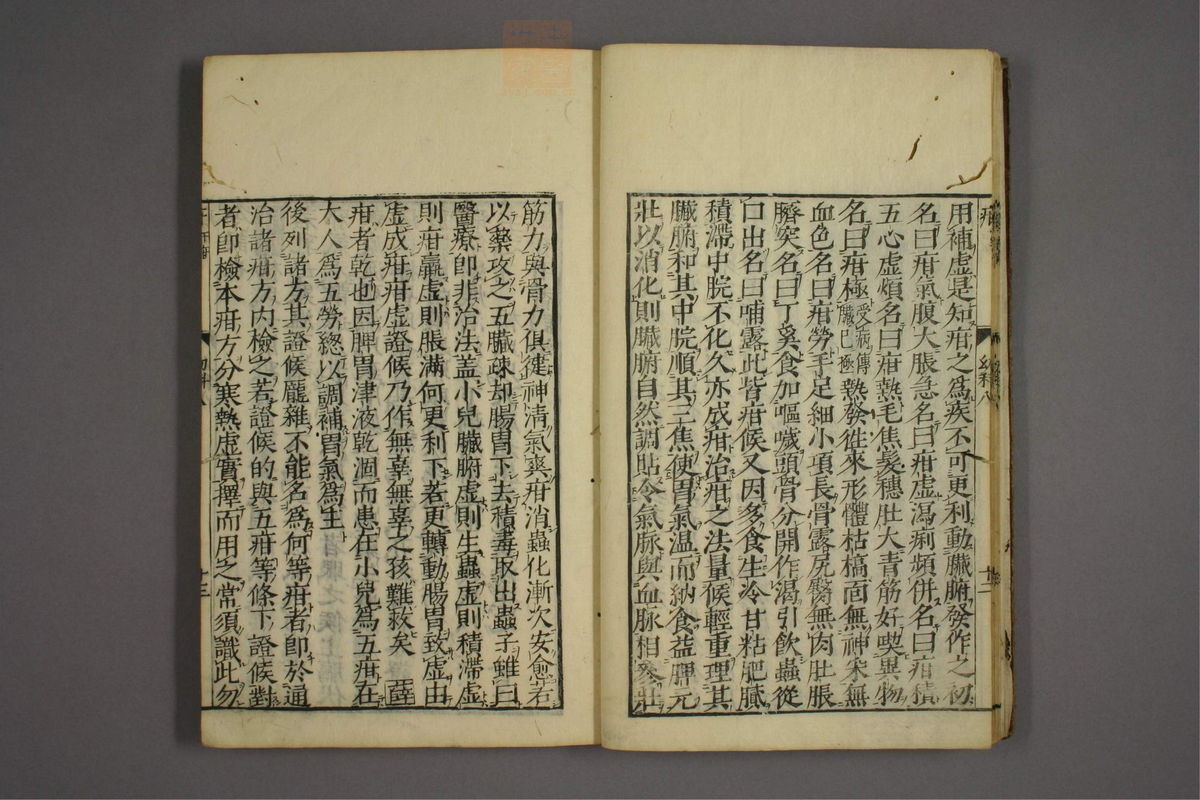 用補虛是短疳之為疾不可更利動臟腑發作之初
名曰疳氣腹大脹急名曰疳虛瀉痢頻併名曰疳積
五心虛煩名曰疳熱毛焦髮穗肚大青筋好喫異物
名曰疳極受病傳臟已極熱發徃來形體枯槁面無神宋無
血色名曰疳勞手足細小項長骨露尻臀無肉肚脹
臍突名曰丁奚食加嘔噦頭骨分開作渴引飲蟲從
口出名曰哺露此皆疳候又因多食生冷甘粘肥膩
積滯中脘不化久亦成疳治疳之法量候輕重理其
臟腑和其中脘順其三焦使胃氣温而納食益脾元
壯以消化則臟腑自然調貼令氣脉與血脉相參壯
筋力與骨力俱健神清氣爽疳消蟲化漸次安愈若
以藥攻之五臟疎却腸胃下去積毒取出蟲子雖曰
醫療即非治法盖小兒臟腑虛則生蟲虛則積滯虛
則疳羸虛則脹滿何更利下若更轉動腸胃致虛由
虛成疳疳虛證候乃作無辜無辜之孩難救矣 薛
疳者乾也因脾胃津液乾涸而患在小兒為五疳在
大人為五勞總以調補胃氣為主
後列諸方其證候龐雜不能名為何等疳者即於通
治諸疳方內檢之若證候的與五疳等條下證候對
者即檢本疳方分寒熱虛實擇而用之常須識此勿
幼科八
十二
幼科八
十三